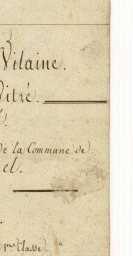 Vilaine.
Vitré.
de la Commune de
el.
Classe